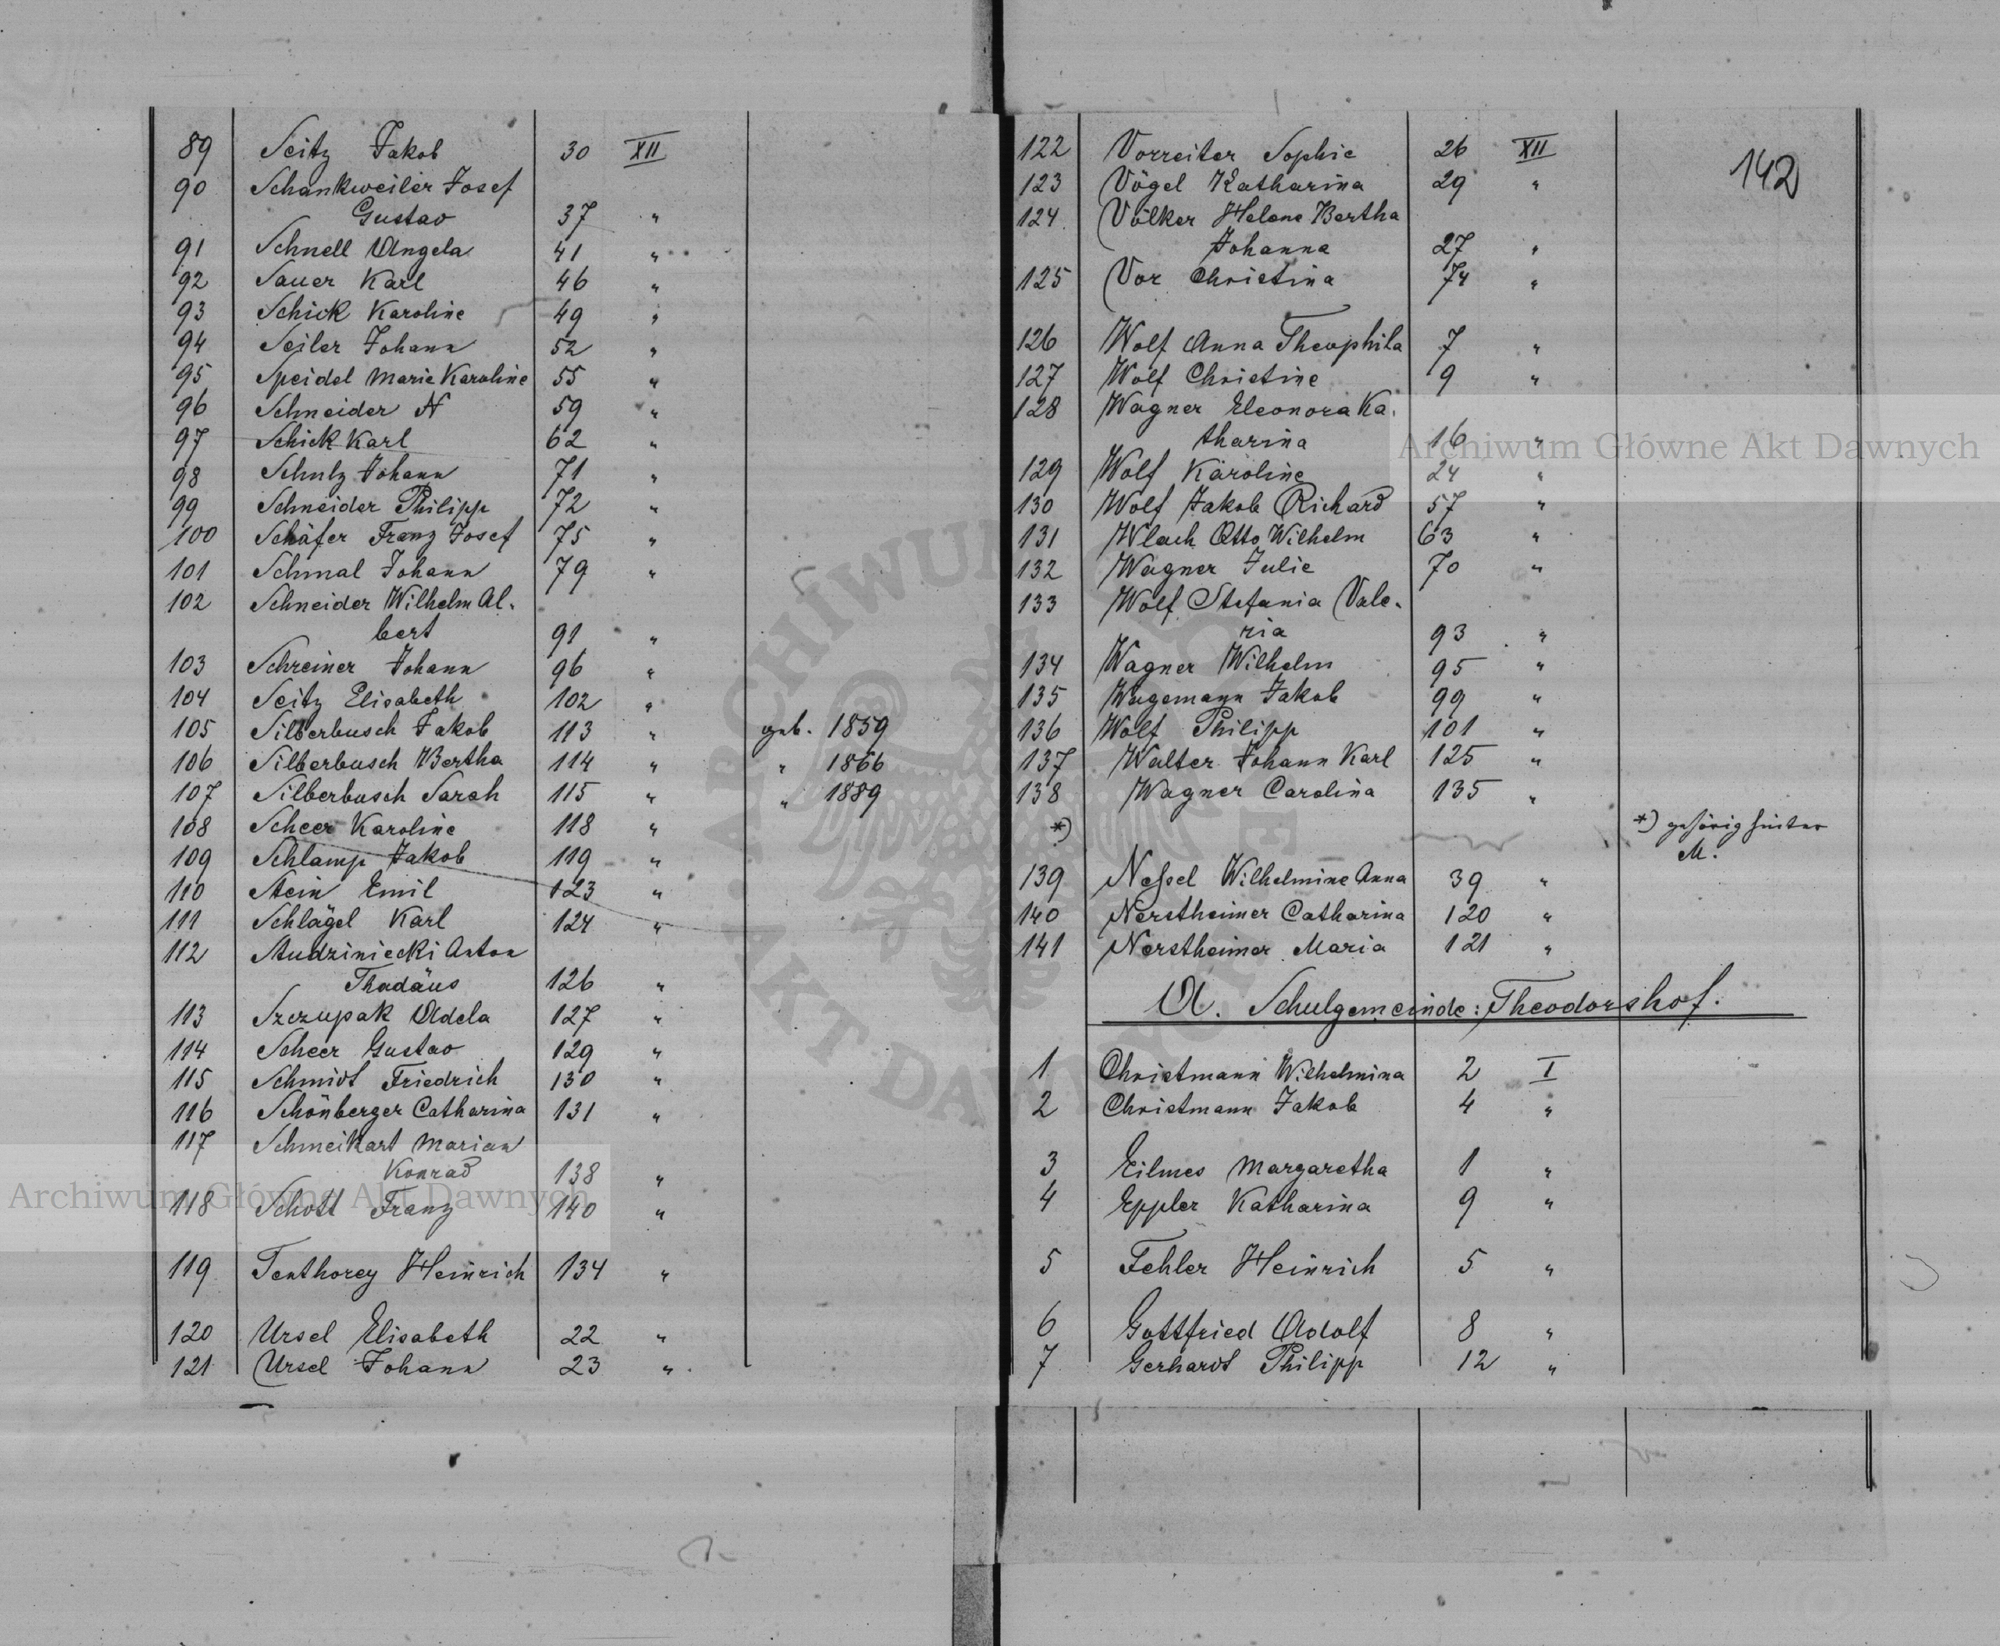 89 Seitz Jakob 30 XII
90 Schankweiler Josef
Gustav 37 "
91 Schnell Angela 41 "
92 Sauer Karl 46 "
93 Schick Karoline 49 "
94 Seiler Johann 52 "
95 Speidel Marie Karoline 55 "
96 Schneider N 59 "
97 Schick Karl 62 "
98 Schulz Johann 71 "
99 Schneider Philipp 72 "
100 Schäfer Franz Josef 75 "
101 Schmal Johann 79 "
102 Schneider Wilhelm Al-
bert 91 "
103 Schreiner Johann 96 "
104 Seitz Elisabeth 102 "
105 Silberbusch Jakob 113 " geb. 1859
106 Silberbusch Bertha 114 " " 1866
107 Silberbusch Sarah 115 " " 1889
108 Scheer Karoline 118 "
109 Schlamp Jakob 119 "
110 Stein Emil 123 "
111 Schlägel Karl 124 "
112 Studziniecki Anton
Thadäus 126 "
113 Szczupak Adela 127 "
114 Scheer Gustav 129 "
115 Schmidt Friedrich 130 "
116 Schönberger Catharina 131 "
117 Schmeikart Marian
Konrad 138 "
118 Schott Franz 140 "
119 Tenthorey Heinrich 134 "
120 Ursel Elisabeth 22 "
121 Ursel Johann 23 "
142
122 Vorreiter Sophie 26 XII
123 Vögel Katharina 29 "
124 Völker Helene Bertha
Johanna 27 "
125 Vor Christina 74 "
126 Wolf Anna Theophila 7 "
127 Wolf Christine 9 "
128 Wagner Eleonora Ka-
tharina 16 "
129 Wolf Karoline 24 "
130 Wolf Jakob Richard 57 "
131 Wlach Otto Wilhelm 63 "
132 Wagner Julie 70 "
133 Wolf Stefania Vale-
ria 93 "
134 Wagner Wilhelm 95 "
135 Wagemann Jakob 99 "
136 Wolf Philipp 101 "
137 Walter Johann Karl 125 "
138 Wagner Carolina 135 "
*) *) gehörig hinter
M.
139 Neßel Wilhelmine Anna 39 "
140 Nerstheimer Catharina 120 "
141 Nerstheimer Maria 121 "
A. Schulgemeinde: Theodorshof.
1 Christmann Wilhelmina 2 I
2 Christmann Jakob 4 "
3 Eilmes Margaretha 1 "
4 Eppler Katharina 9 "
5 Fehler Heinrich 5 "
6 Gottfried Adolf 8 "
7 Gerhardt Philipp 12 "
Archiwum Główne Akt Dawnych
Archiwum Główne Akt Dawnych